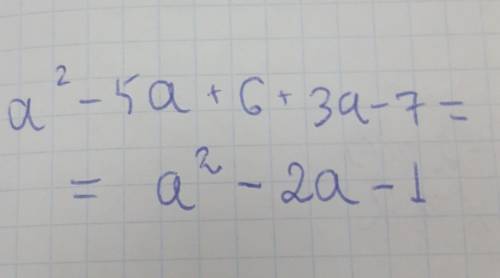 a² - 5a + 6 + 3a - 7 =
= a² - 2a - 1